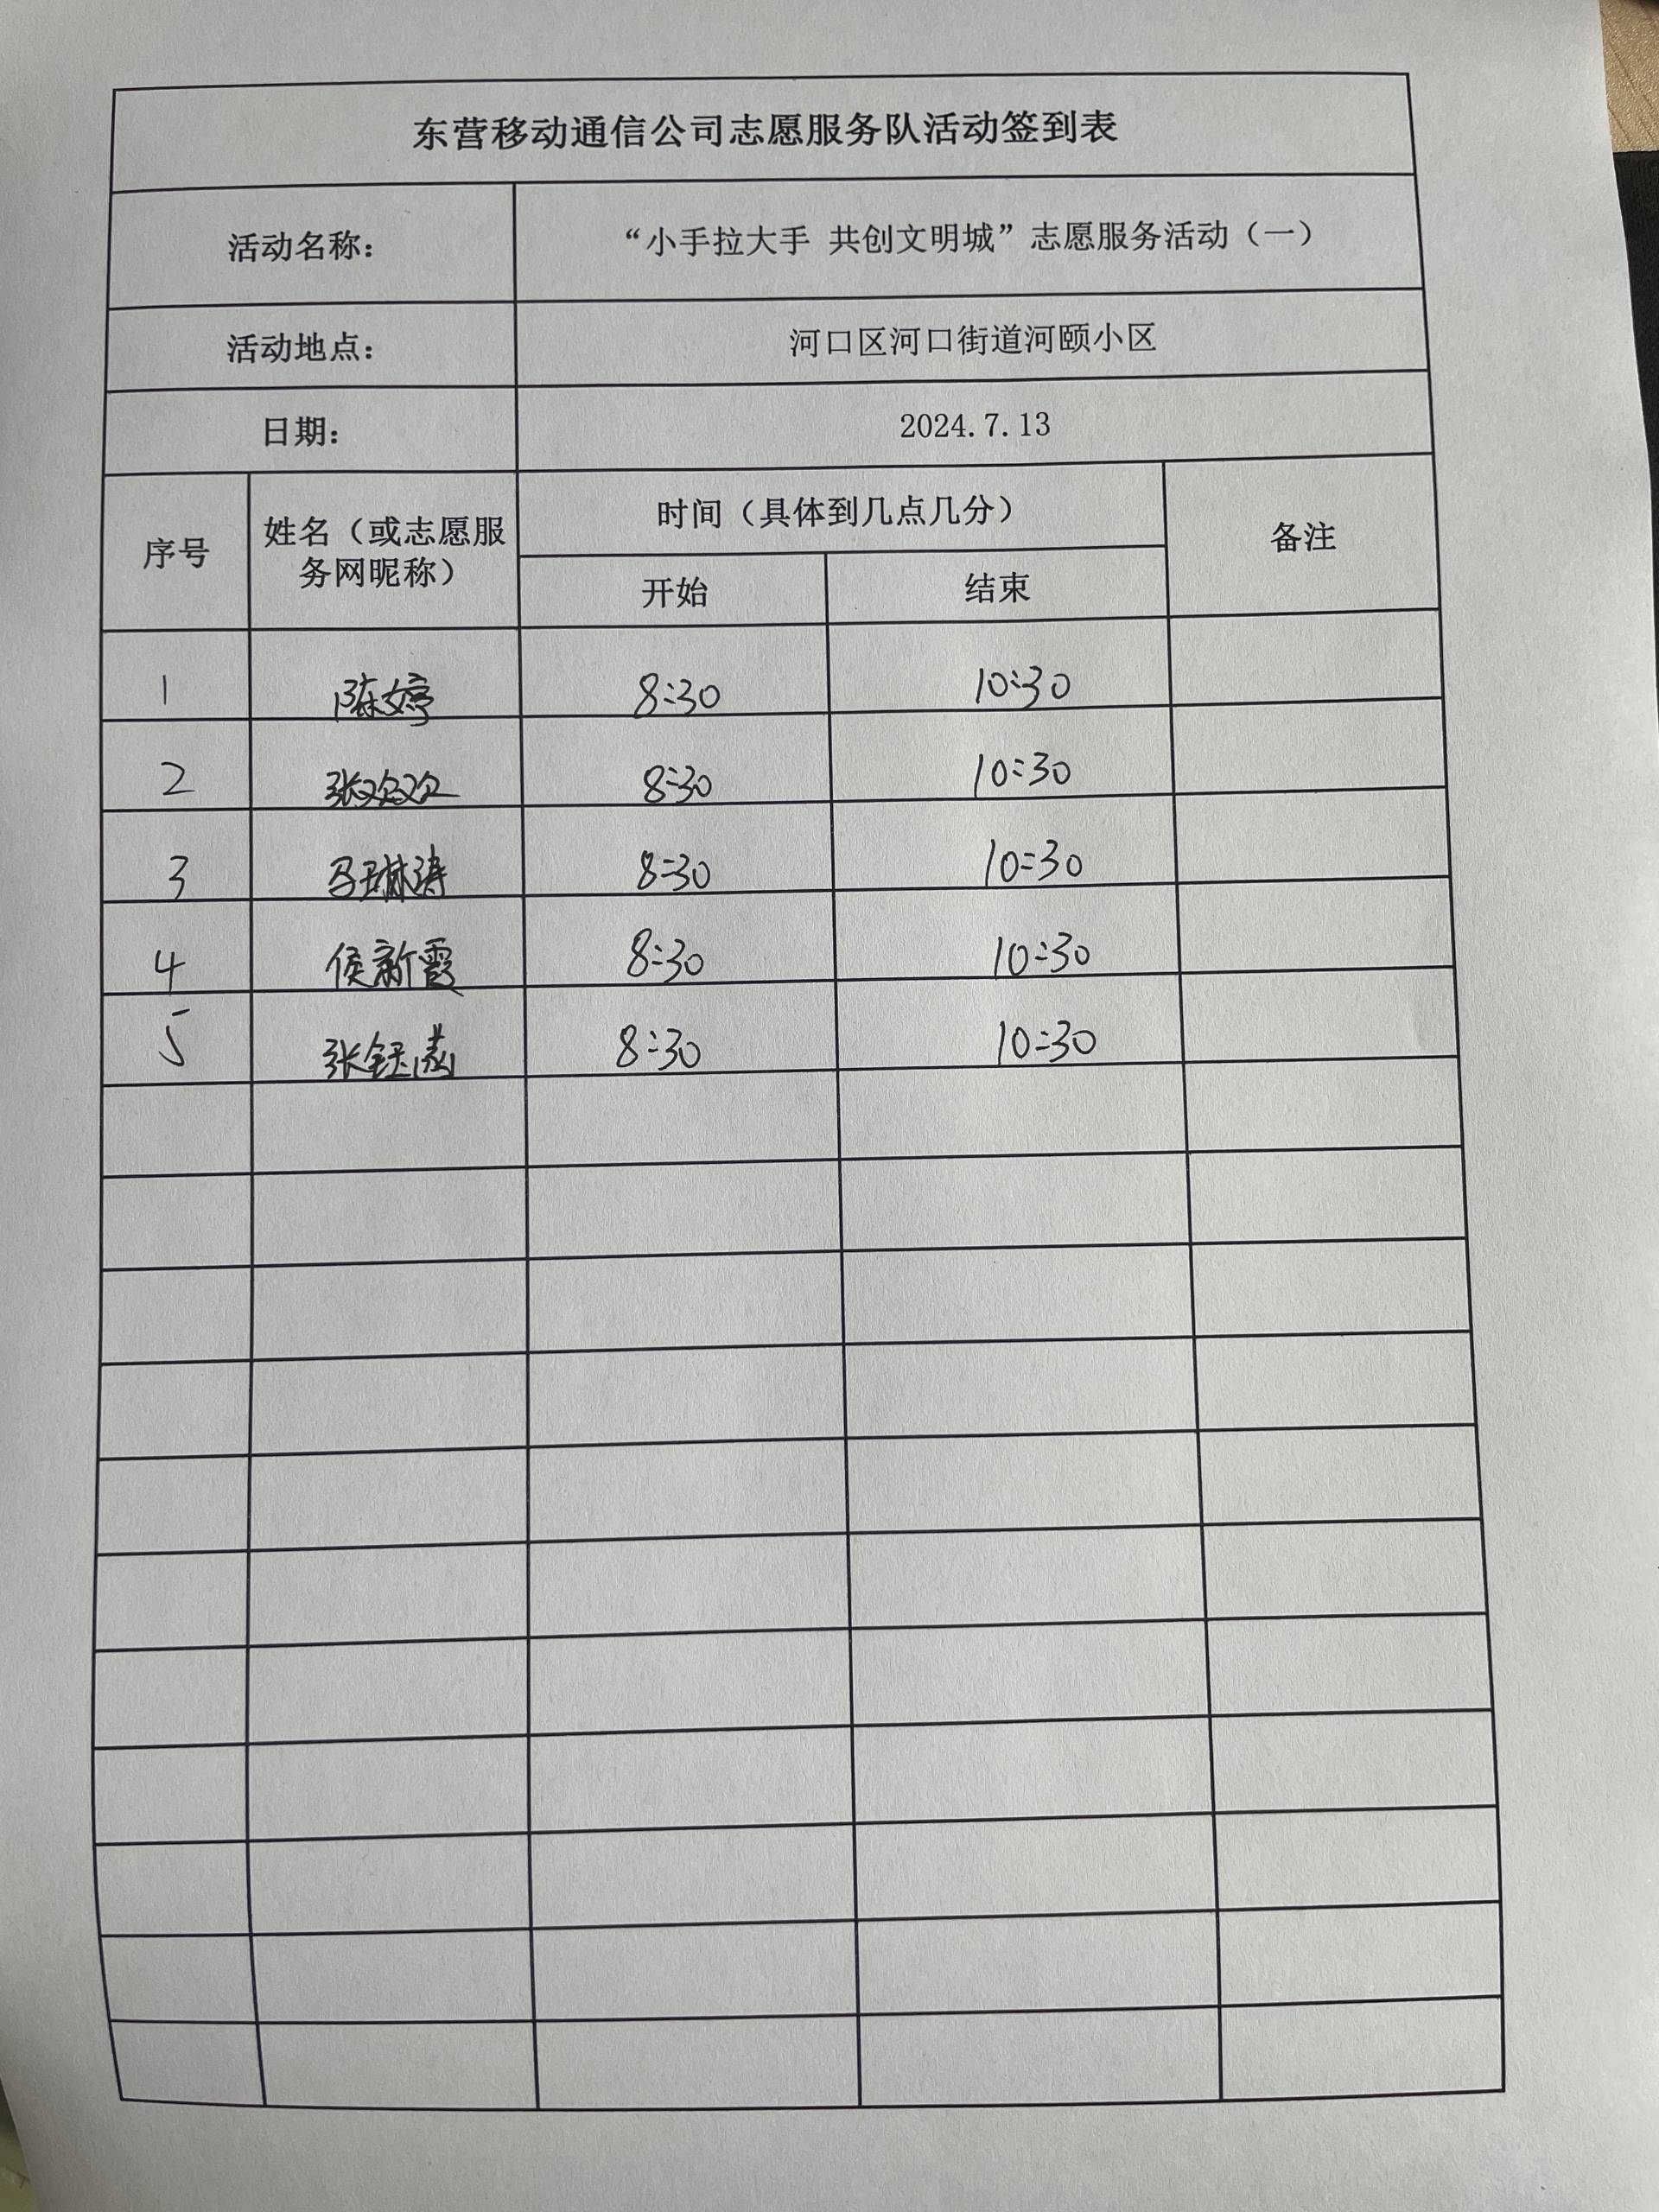 东营移动通信公司志愿服务队活动签到表
活动名称： “小手拉大手 共创文明城”志愿服务活动（一）
活动地点： 河口区河口街道河颐小区
日期： 2024.7.13
序号 姓名（或志愿服务网昵称） 时间（具体到几点几分） 备注
开始 结束
1 陈婷 8:30 10:30
2 张欢欢 8:30 10:30
3 马琳涛 8:30 10:30
4 侯新霞 8:30 10:30
5 张钰 8:30 10:30